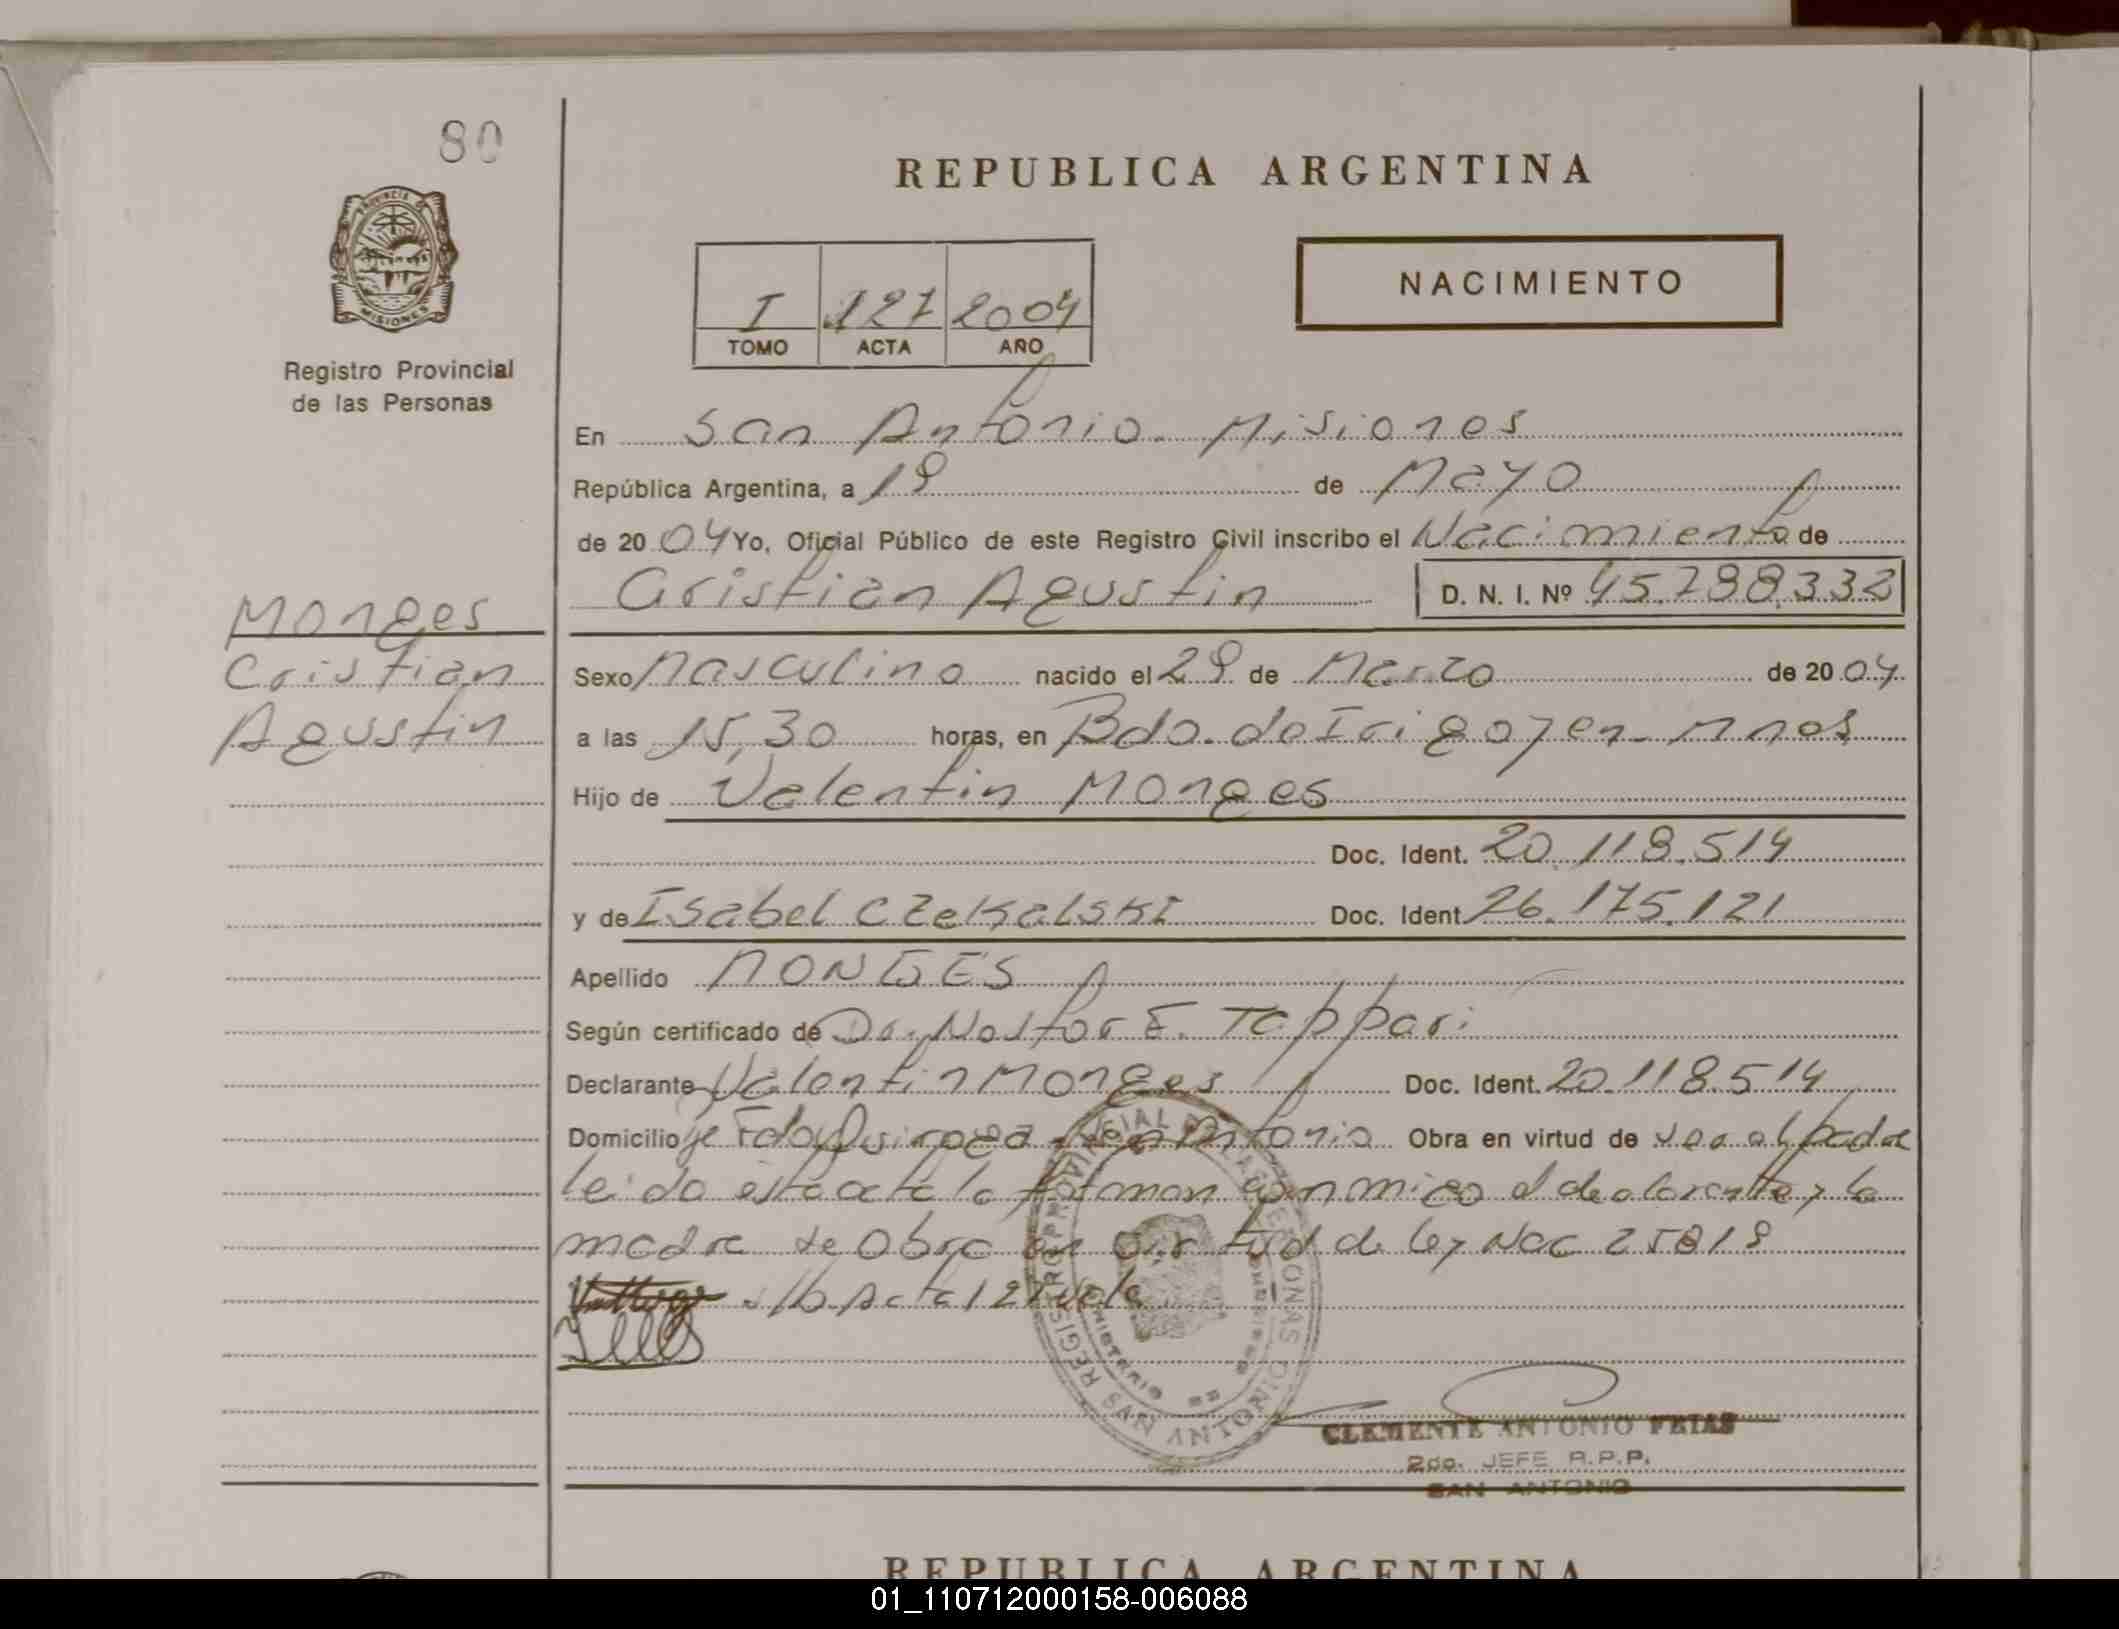 80
PROVINCIA DE
MISIONES
Registro Provincial
de las Personas
REPUBLICA ARGENTINA
NACIMIENTO
I 127 2004
TOMO ACTA AÑO
En San Antonio - Misiones
República Argentina, a 19 de Mayo
de 2004 Yo, Oficial Público de este Registro Civil inscribo el Nacimiento de
Cristian Agustin D. N. I. Nº 45.788.332
Monges
Cristian
Agustin
Sexo Masculino nacido el 29 de Marzo de 2004
a las 15,30 horas, en Bdo. de Irigoyen - Mnes
Hijo de Valentin Monges
Doc. Ident. 20.118.514
y de Isabel CZeKalsKI Doc. Ident. 26.175.121
Apellido MONGES
Según certificado de Dr. Nestor E. Tappari
Declarante Valentin Monges Doc. Ident. 20.118.514
Domicilio San Antonio Obra en virtud de ser el padre
leida esta acta la firman conmigo el declarante y la
madre se Obra en virtud de ley Nac 25819
s/b Acta 127 vale
REGISTRO PROVINCIAL DE LAS PERSONAS
SAN ANTONIO
MINISTERIO DE GOBIERNO
CLEMENTE ANTONIO FRIAS
2do. JEFE R.P.P.
SAN ANTONIO
REPUBLICA ARGENTINA
01_110712000158-006088